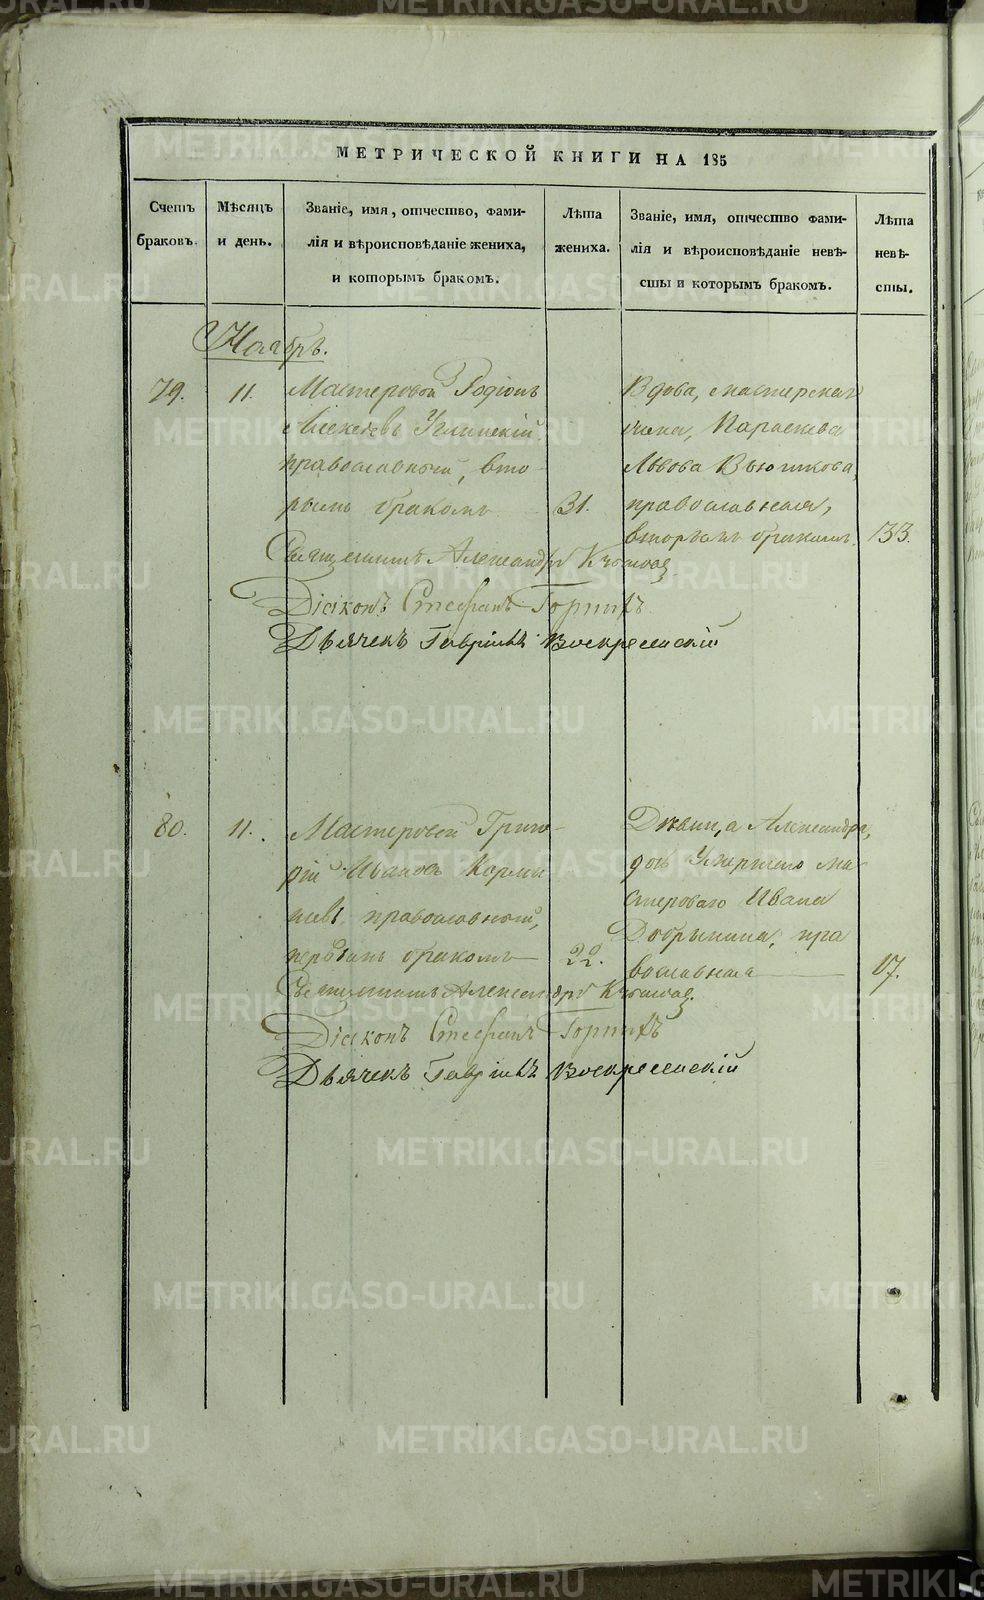 МЕТРИЧЕСКОЙ КНИГИ НА 185
Счетъ браковъ.
Мѣсяцъ и день.
Званіе, имя, отчество, фами-
лія и вѣроисповѣданіе жениха,
и которымъ бракомъ.
Лѣта жениха.
Званіе, имя, отчество фами-
лія и вѣроисповѣданіе невѣ-
сты и которымъ бракомъ.
Лѣта невѣ-
сты.
Ноябрь.
79.
11.
Мастеровой Родіонъ
Алексѣевъ
православный, вто-
рымъ бракомъ
31.
Вдова, мастерская
жена, Параскева
Львова Вьюшкова,
православная,
вторымъ бракомъ.
33.
Священникъ Александръ
Діаконъ Стефанъ
Дьячекъ Гавріилъ Воскресенскій
80.
11.
Мастеровой Григо-
рій Ивановъ Корми
православный,
первымъ бракомъ
22.
Дѣвица Александра,
дочь умершаго ма-
стероваго Ивана
Добрынина, пра
вославная
17.
Священникъ Александръ
Діаконъ Стефанъ
Дьячекъ Гавріилъ Воскресенскій
METRIKI.GASO-URAL.RU